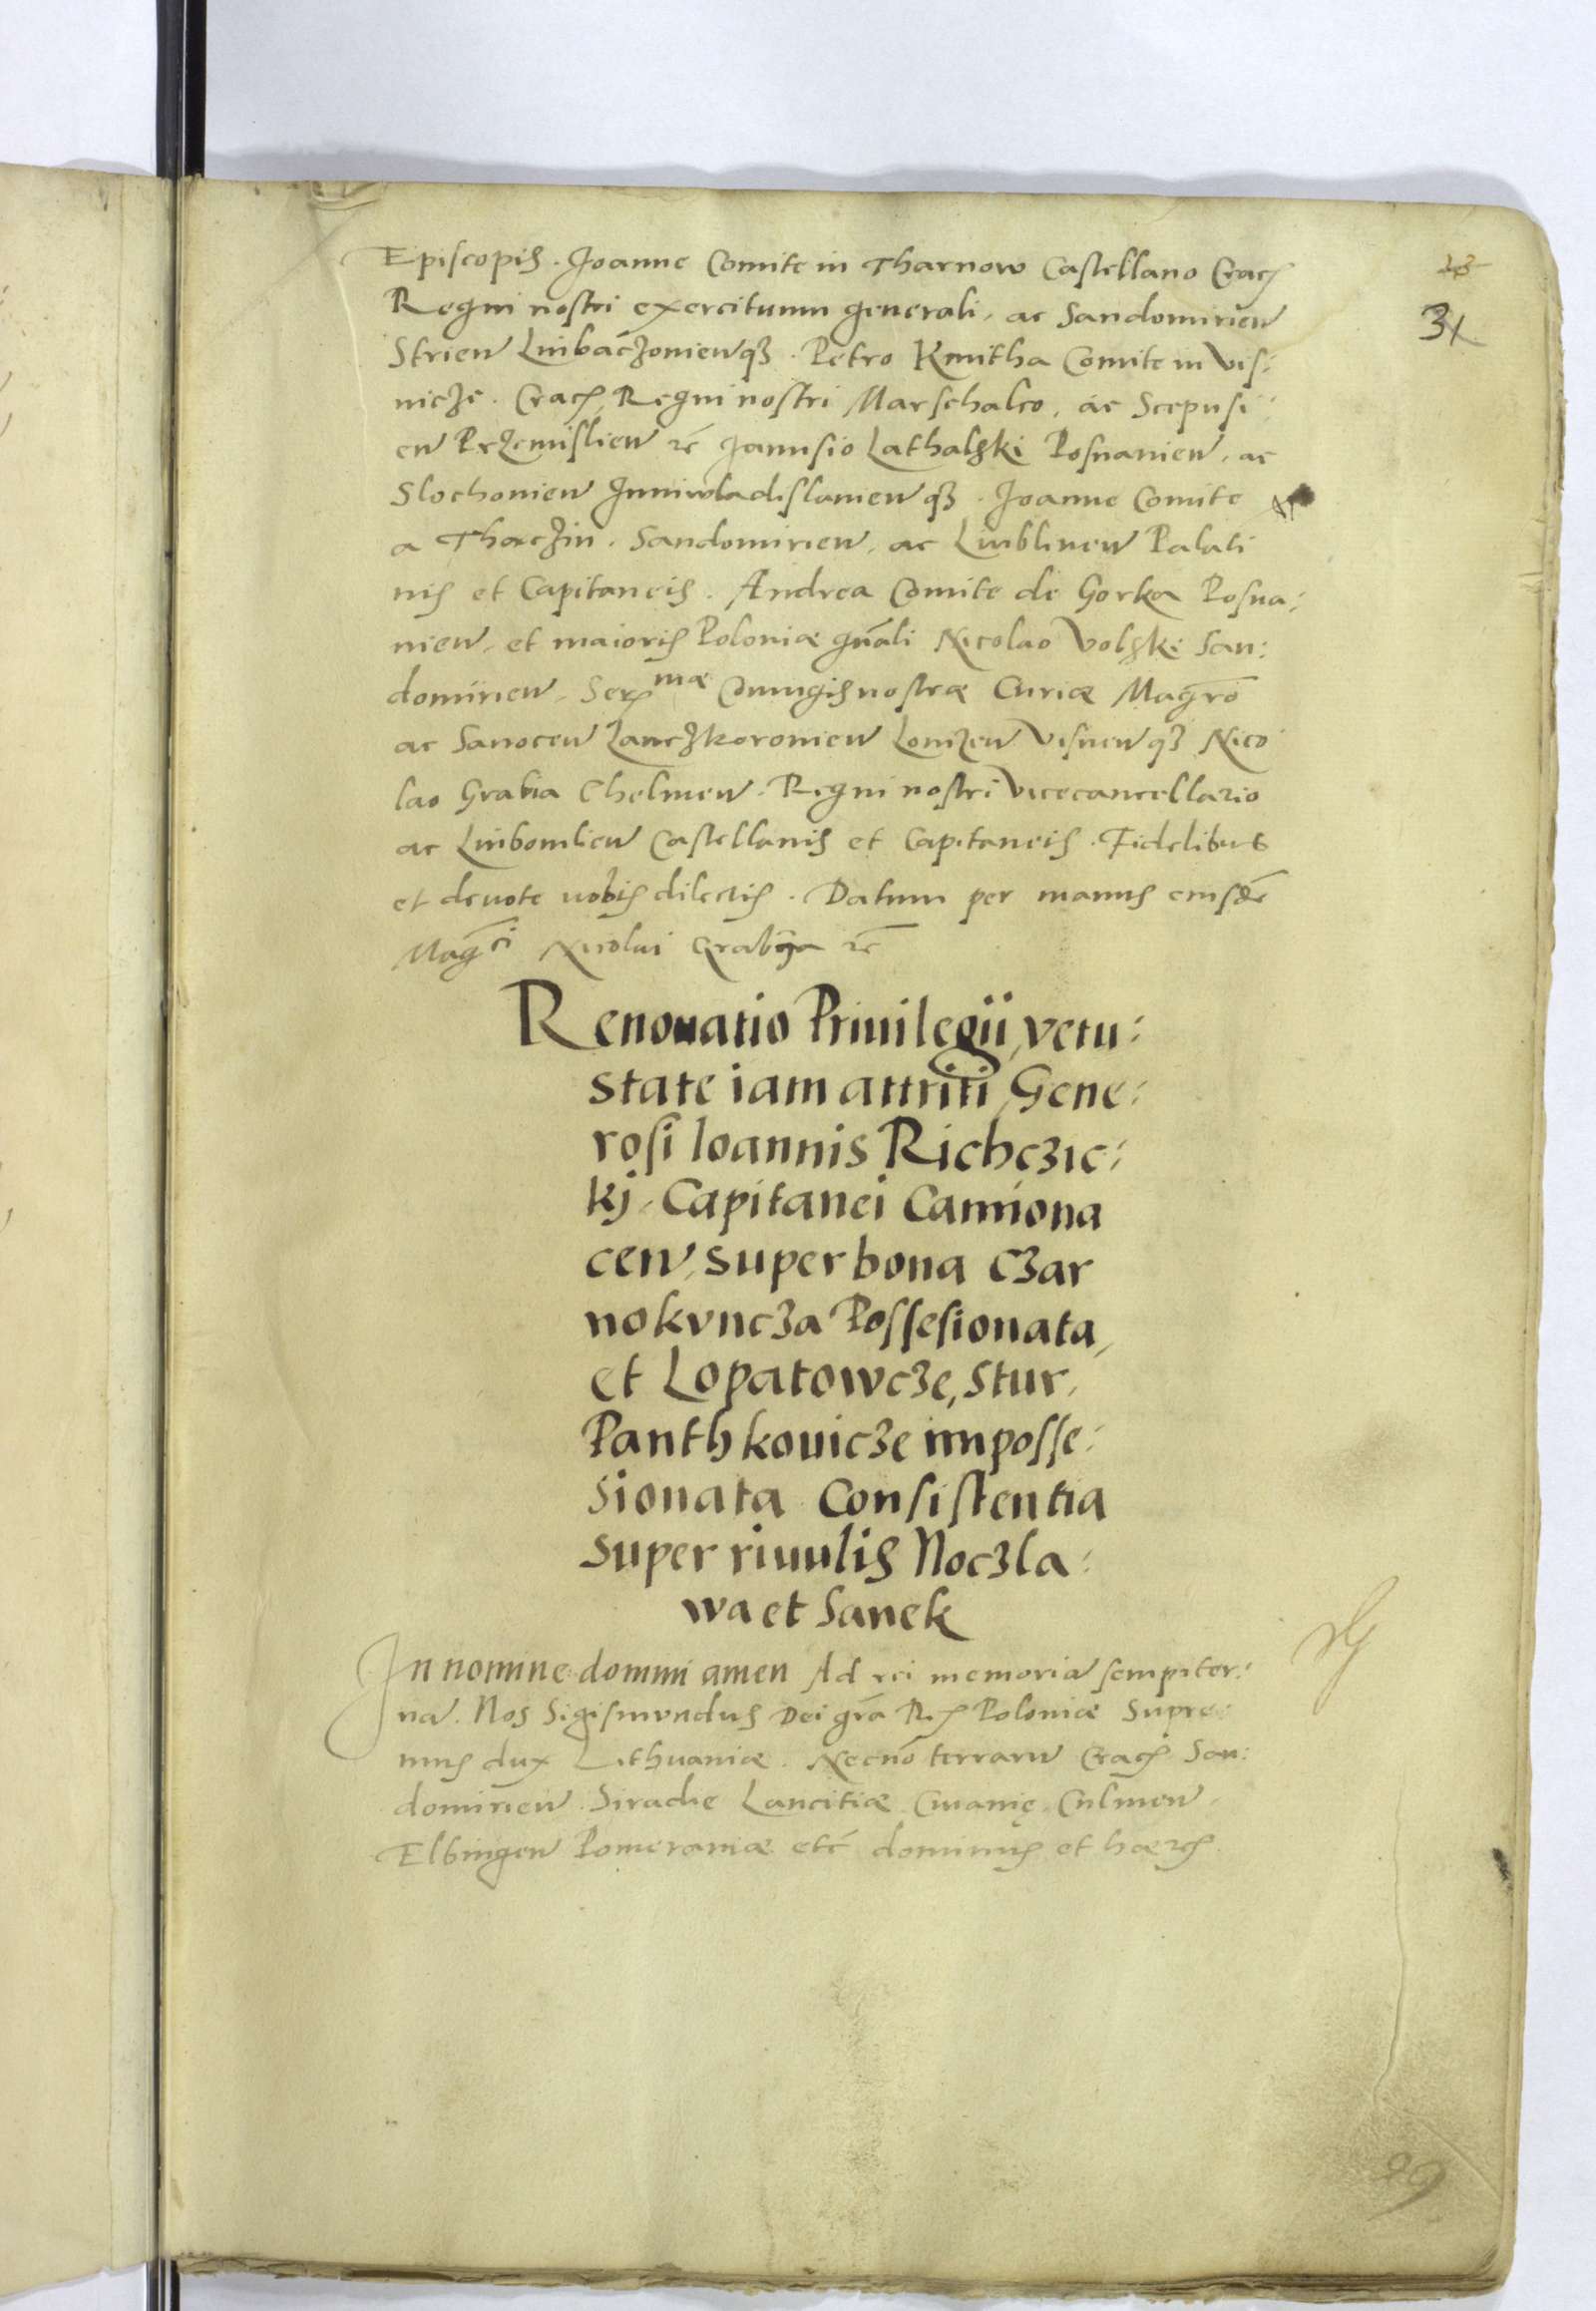 23
31
Episcopis. Joanne Comite in Tharnow Castellano Crac̄
Regni nostri exercituum generali, ac Sandomirien̄
Strien̄ Luibaczonien̄ qȝ. Petro Kmitha Comite in Vis:
nicze. Crac̄, Regni nostri Marschalco, ac Scepusi:
en̄ Przemislien̄ ꝛc̄ Janusio Lathalski Posnanien̄, ac
Slochonien̄ Juniwladislauien̄ qȝ. Joanne Comite
a Thaczin. Sandomirien̄, ac Lublinen̄ Palati
nis et Capitaneis. Andrea Comite de Gorka Posna:
nien̄, et maioris Poloniæ gn̄ali Nicolao Volski San:
domirien̄, Ser᷒ᵐᵃᵉ Coniugis nostræ Curiæ Magr̄o
ac Sanocen̄ Lanczkoronien̄ Lomzen̄ Visnen̄ qȝ Nico
lao Grabia Chelmen̄. Regni nostri Vicecancellario
ac Luibomlien̄ Castellanis et Capitaneis. Fidelibus
et deuote nobis dilectis. Datum per manus eiusdē
Mag̅ci Nicolai Grabya ꝛc̄
Renouatio Priuilegii, vetu:
state iam attriti, Gene:
rosi Ioannis Richczic:
kj, Capitanei Camiona
cen̄, super bona Czar
nokvncza Possesionata,
et Lopatowcze, Stur,
Panthkouicze imposse:
sionata Consistentia
super riuulis Noczla:
wa et Sanek
In nomine domini amen Ad rei memoriā sempiter:
nā. Nos Sigismvndus Dei gr̄a Rx̄ Poloniæ Supre:
mus dux Lithvaniæ. Necnō terrarū Crac̄ San:
domirien̄. Siradie Lancitiæ Cuiauię Culmen̄,
Elbingen̄ Pomeraniæ etc̄ dominus et hæres